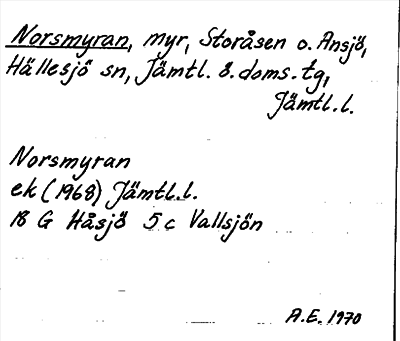 Norsmyran, myr, Storåsen o. Ansjö,
Hällesjö sn, Jämtl. ö. doms. tg,
Jämtl. l.
Norsmyran
ek (1968) Jämtl. l.
18 G Håsjö 5 c Vallsjön
A.E. 1970